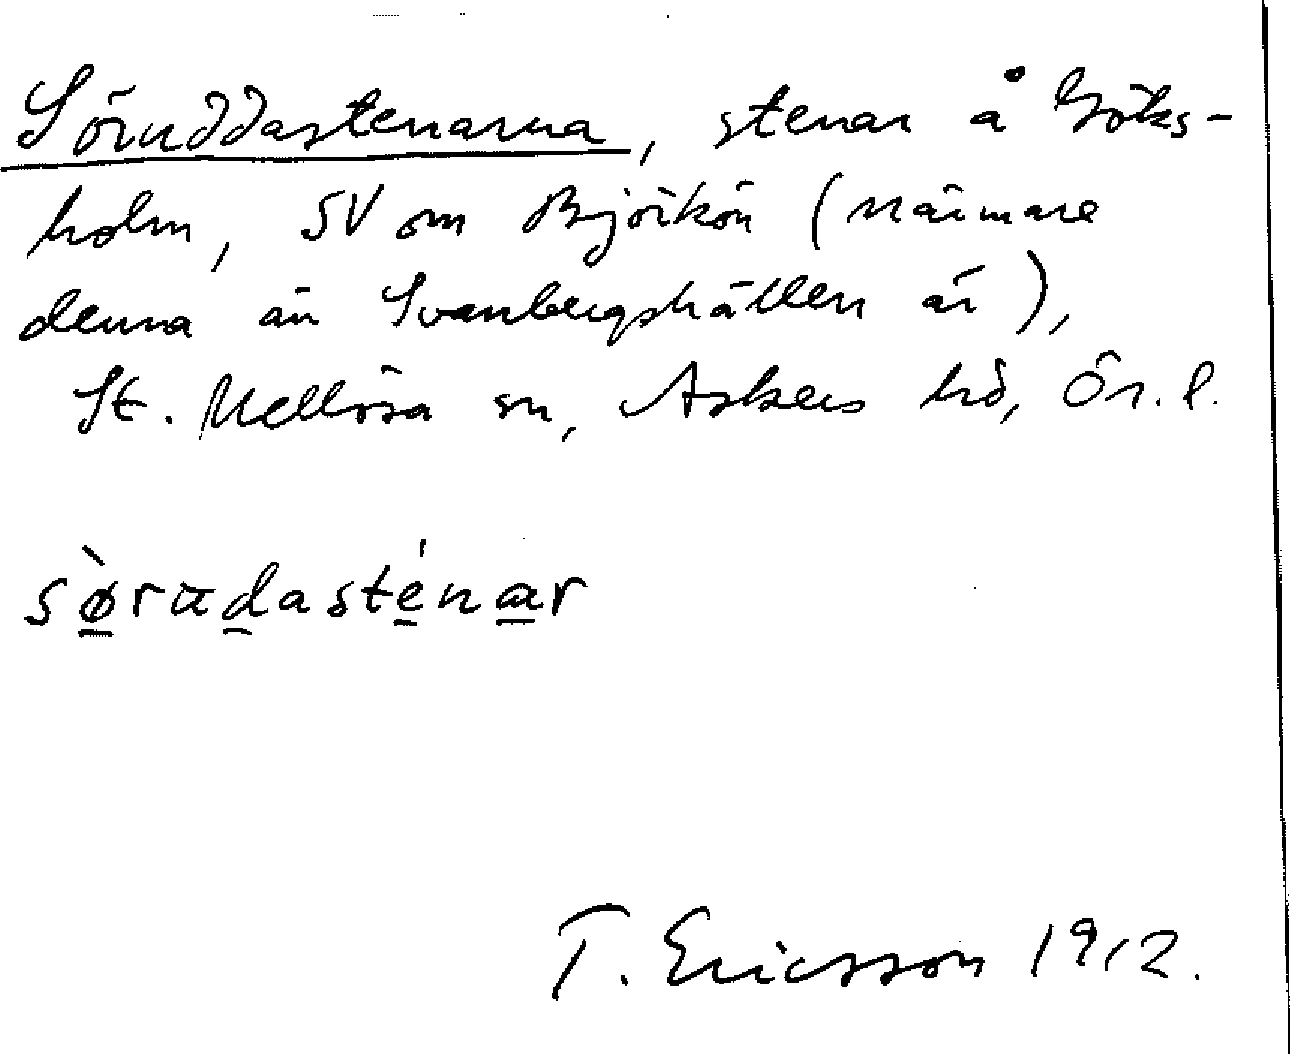 Söruddastenarna, stenar å Göks-
holm, SV om Björkön (närmare
denna än Svanbergshällen är),
St. Mellösa sn, Askers hd, Ör. l.
sø̀rudasténar
T. Ericsson 1912.